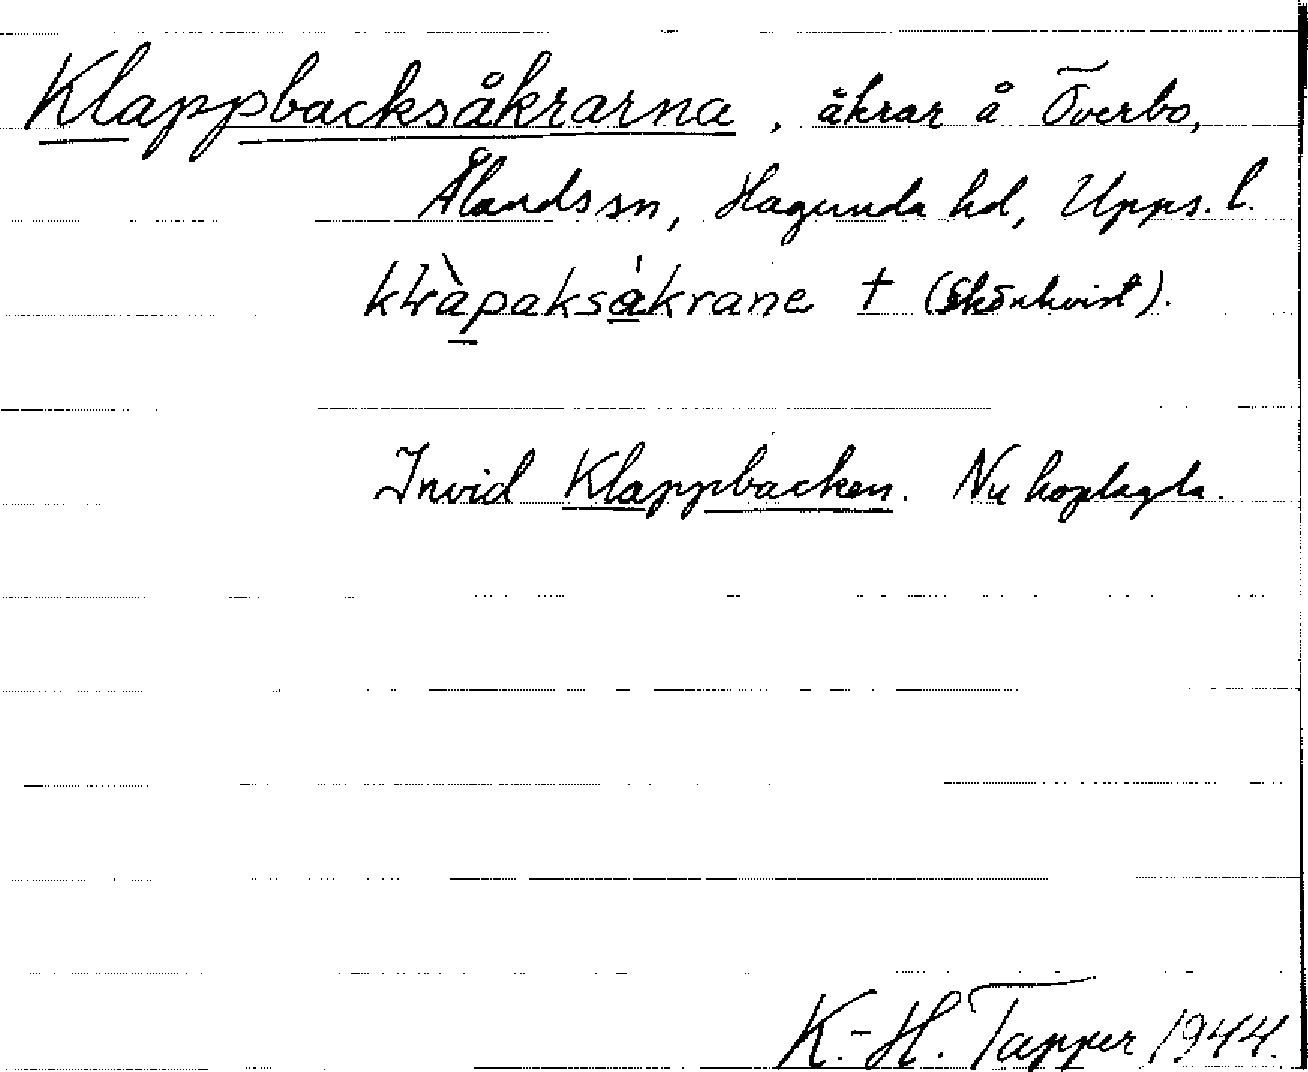 Klappbacksåkrarna, åkrar å Överbo,
Ålands sn, Hagunda hd, Upps. l.
kɬràpaksákrane † (Skönkvist).
Invid Klappbacken. Nu hoplagda.
K.-H. Tapper 1944.